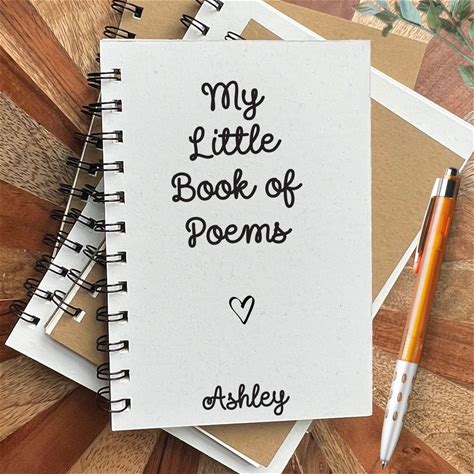 My
Little
Book of
Poems
Ashley